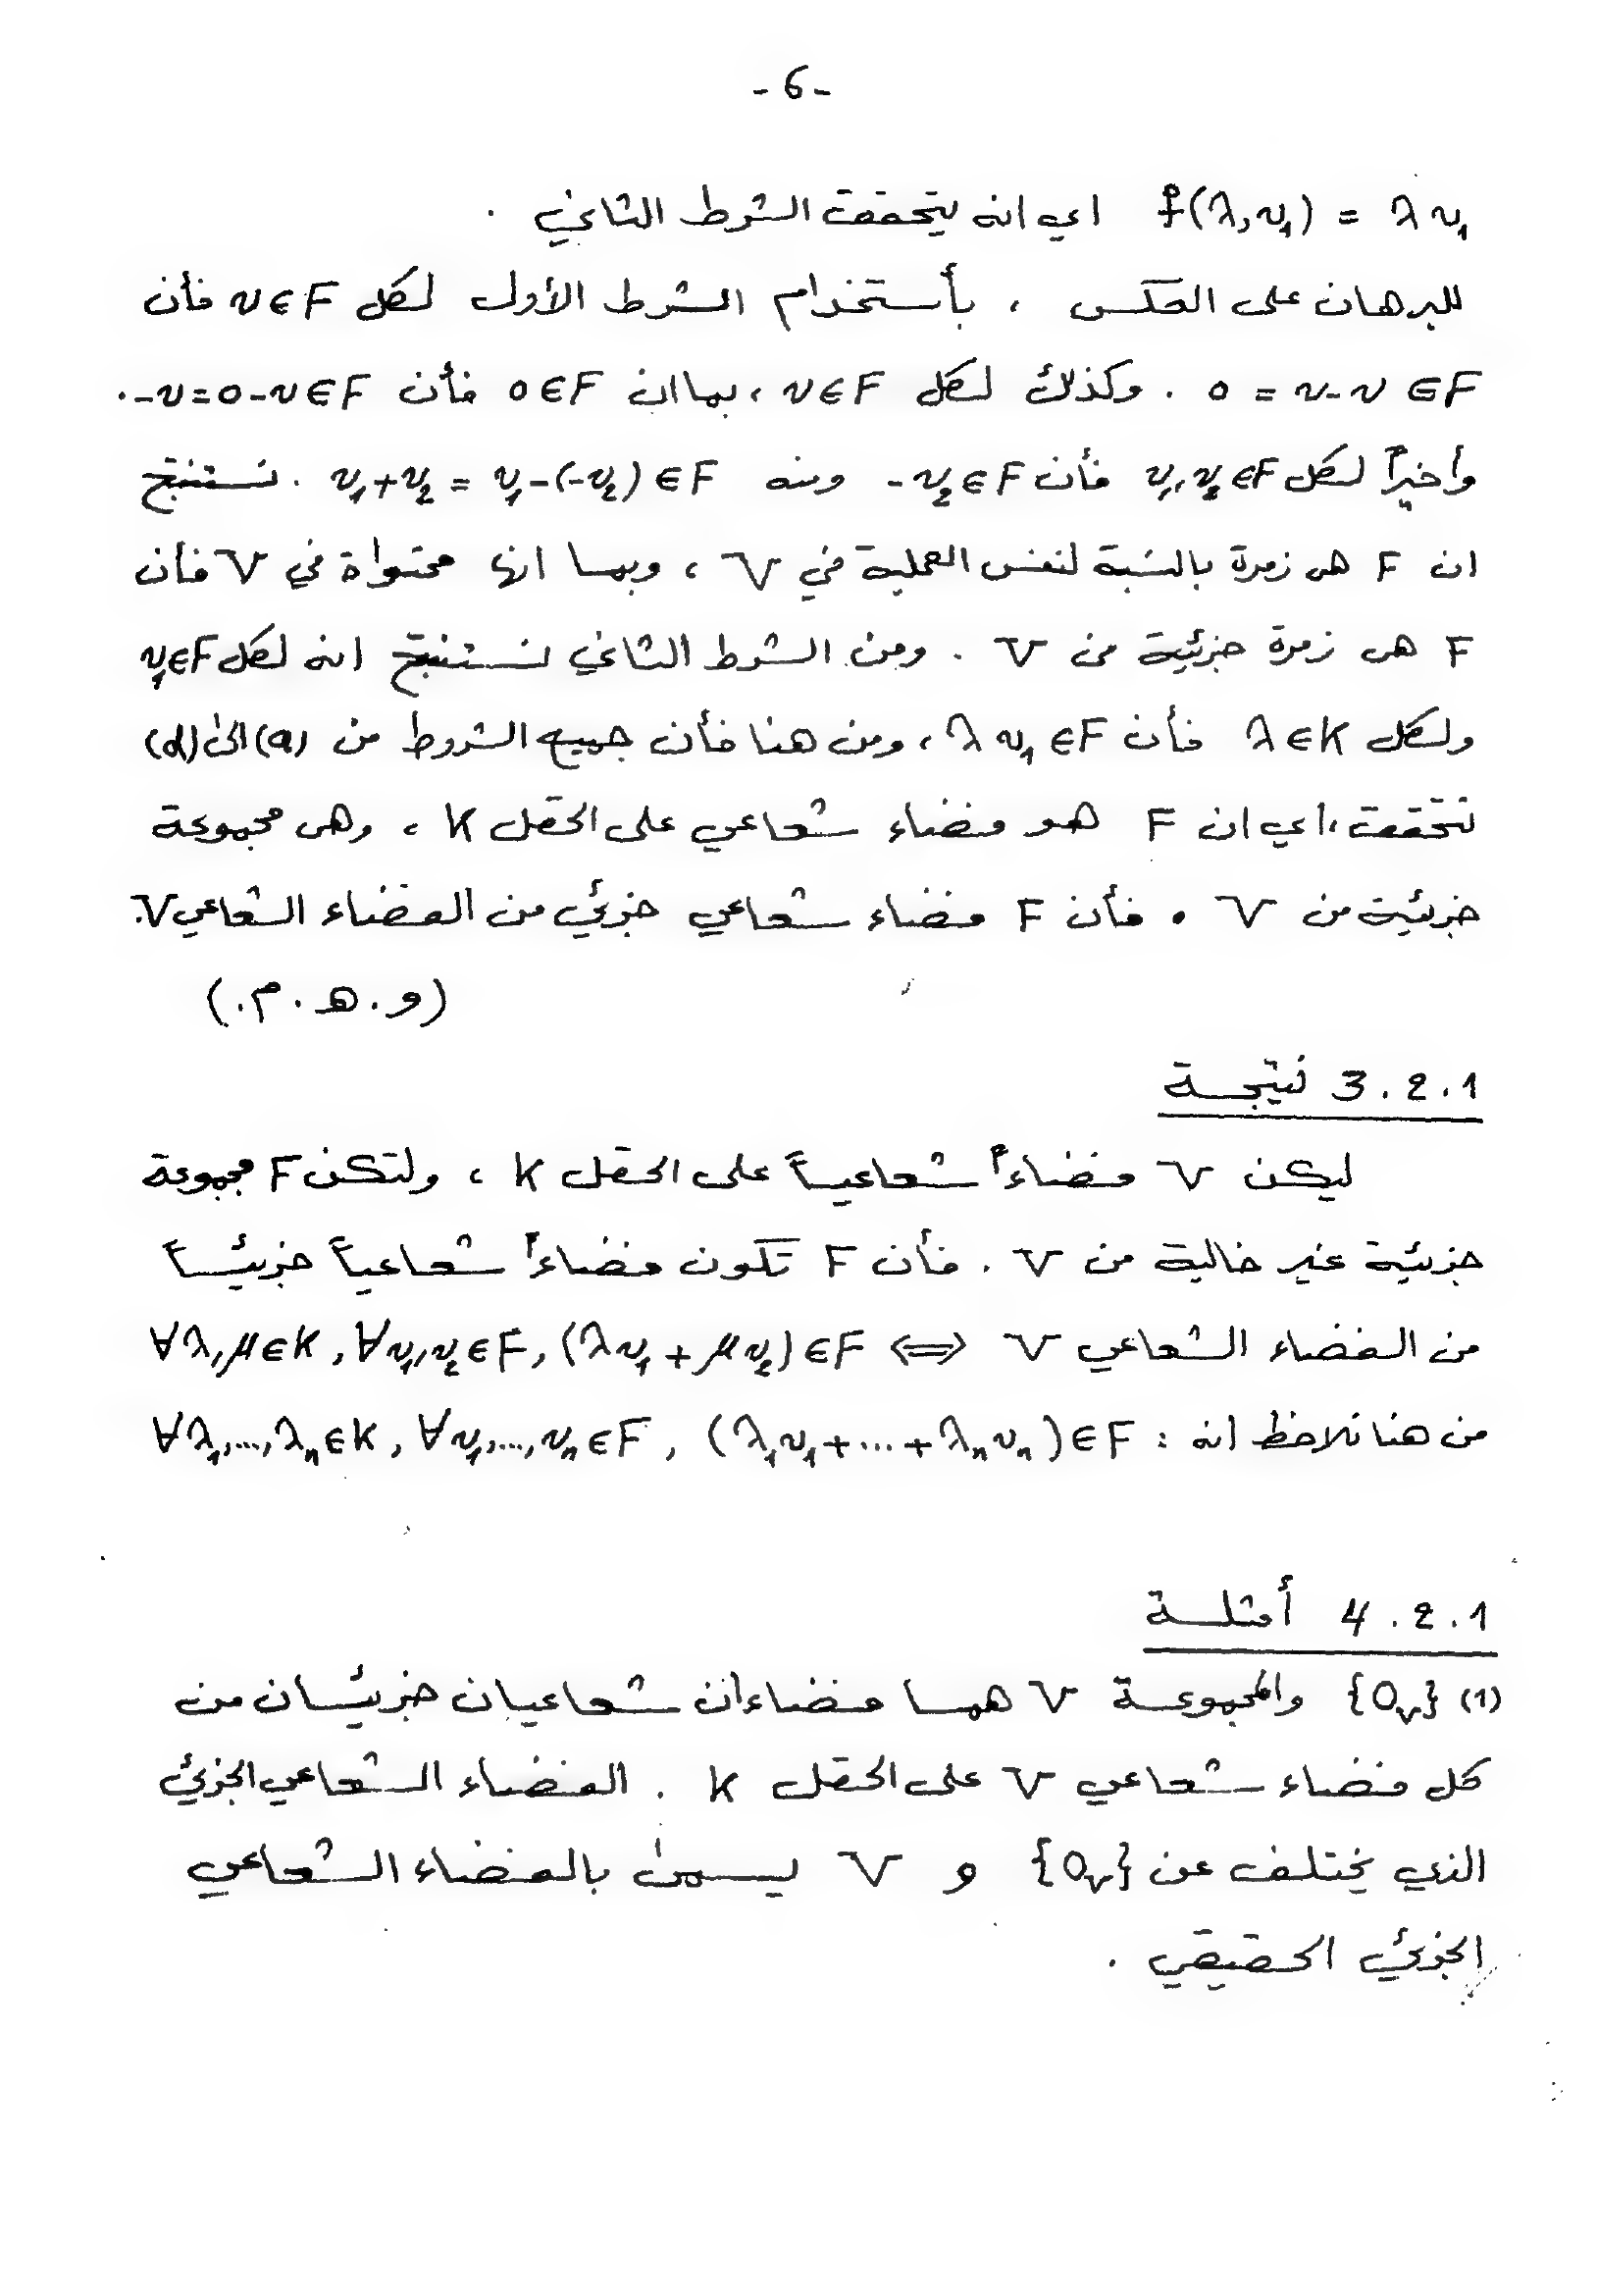 - 6 -
f(λ, v₁) = λ v₁ اي انه يتحقق الشرط الثاني .
للبرهان على العكس ، بأستخدام الشرط الأول لكل v ∈ F فأن
0 = v - v ∈ F . وكذلك لكل v ∈ F ، بما ان 0 ∈ F فأن -v = 0 - v ∈ F .
وأخيراً لكل v₁, v₂ ∈ F فأن -v₂ ∈ F ومنه v₁ + v₂ = v₁ - (-v₂) ∈ F . نستنتج
ان F هي زمرة بالنسبة لنفس العملية في V ، وبما انها محتواة في V فأن
F هي زمرة جزئية من V . ومن الشرط الثاني نستنتج انه لكل v₁ ∈ F
ولكل λ ∈ K فأن λ v₁ ∈ F ، ومن هنا فأن جميع الشروط من (a) الى (d)
تتحقق ، اي ان F هو فضاء شعاعي على الحقل K ، وهي مجموعة
جزئية من V . فأن F فضاء شعاعي جزئي من الفضاء الشعاعي V .
(و . هـ . م .)
3 . 2 . 1 نتيجة
ليكن V فضاءاً شعاعياً على الحقل K ، ولتكن F مجموعة
جزئية غير خالية من V . فأن F تكون فضاءاً شعاعياً جزئياً
من الفضاء الشعاعي V ⟺ ∀λ, μ ∈ K , ∀v₁, v₂ ∈ F , (λv₁ + μv₂) ∈ F
من هنا نلاحظ انه : ∀λ₁, ..., λₙ ∈ K , ∀v₁, ..., vₙ ∈ F , (λ₁v₁ + ... + λₙvₙ) ∈ F
4 . 2 . 1 أمثلة
(1) {0ᵥ} والمجموعة V هما فضاءان شعاعيان جزئيان من
كل فضاء شعاعي V على الحقل K . الفضاء الشعاعي الجزئي
الذي يختلف عن {0ᵥ} و V يسمى بالفضاء الشعاعي
الجزئي الحقيقي .